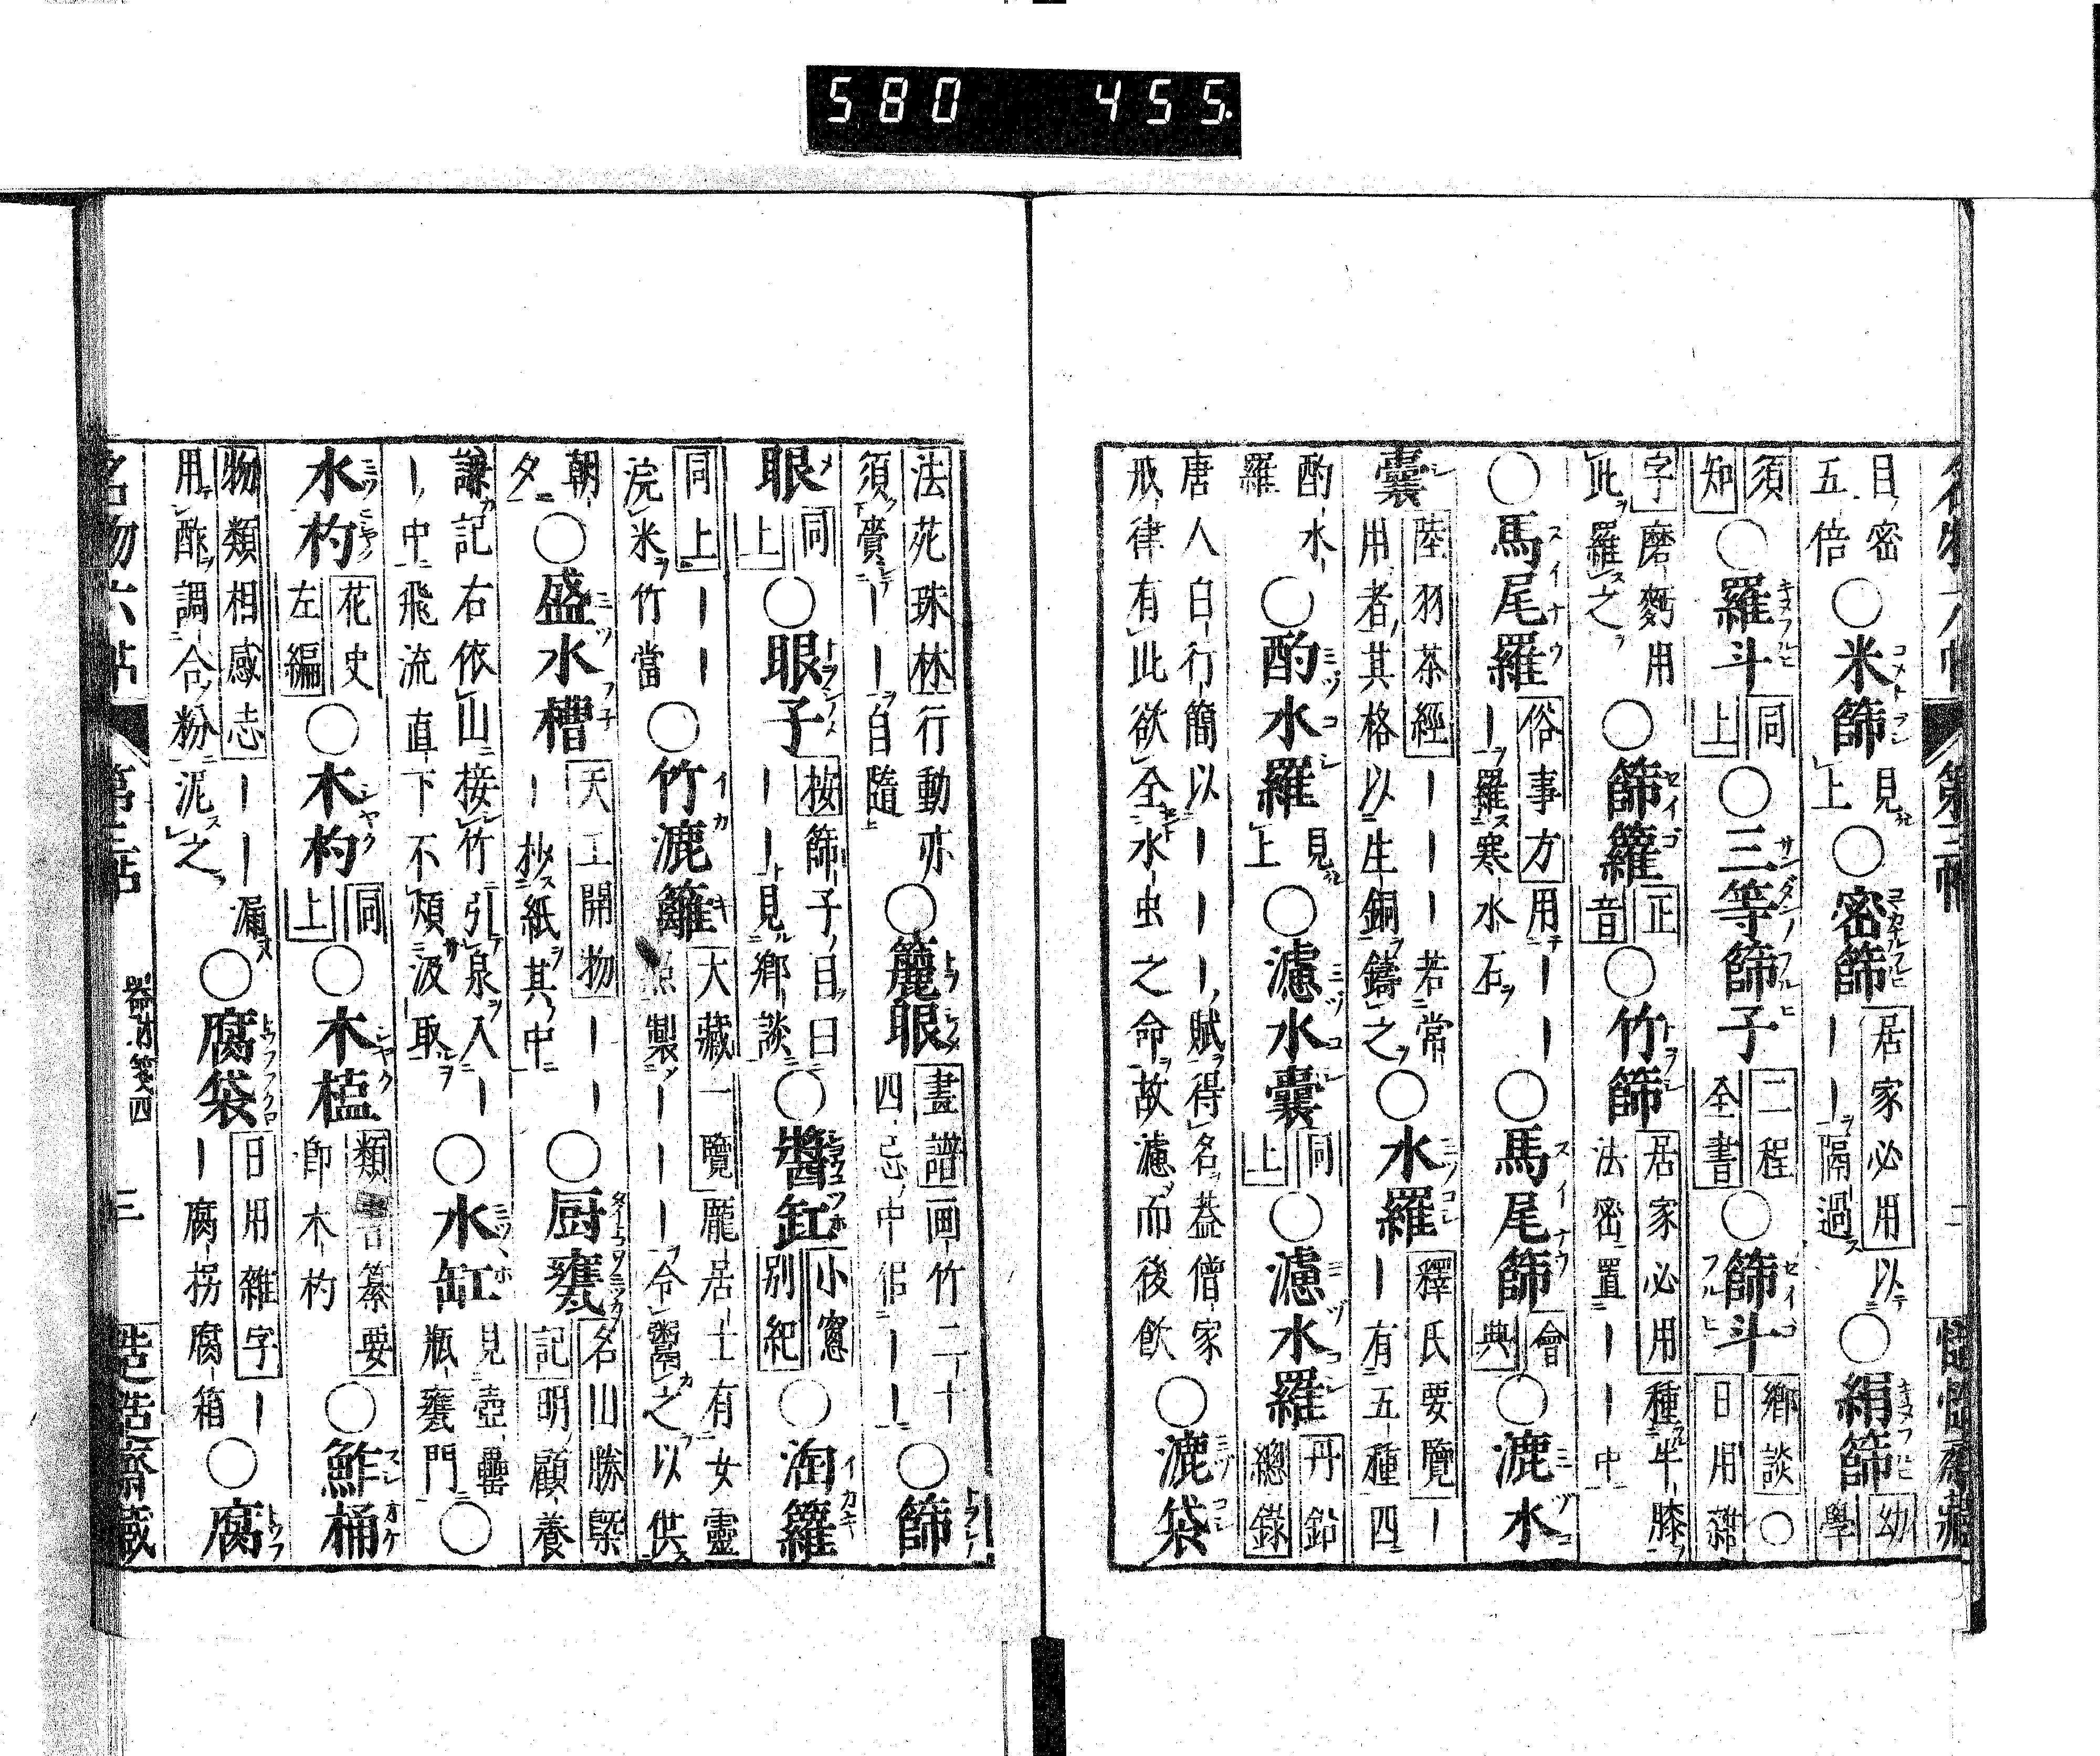 580 455
名物六帖 第三帖 二
目密五倍○米篩見上○密篩居家必用以｜｜隔過○絹篩幼學
須知○羅斗同上○三等篩子二程全書○篩斗鄉談○日用雜
字磨麪用此羅之○篩籮正音○竹篩居家必用種牛膝法密置｜｜中
○馬尾羅俗事方用｜｜｜羅寒水石○馬尾篩會典○漉水
囊陸羽茶經｜｜｜若常用者其格以生銅鑄之○水羅釋氏要覽｜｜有五種四
酌水羅○酌水羅見上○濾水囊同上○濾水羅丹鉛總錄
唐人白行簡以｜｜｜賦得名葢僧家戒律有此欲全水虫之命故濾而後飲○漉袋
法苑珠林行動亦須賷｜｜自隨○䉛眼畫譜画竹二十四忌中侣｜｜○篩
眼同上○眼子按篩子目曰｜｜見鄉談○醬缸小窻別紀○淘籮
同上｜｜浣米竹當○竹漉籬大藏一覽龐居士有女靈照製｜｜｜令鬻之以供
朝夕○盛水槽天工開物｜｜｜抄紙其中○厨甕名山勝槩記明顧養
謙記右依山接竹引泉入｜｜中飛流直下不煩汲取○水缸見壺罍瓶甕門○
水杓花史左編○木杓同上○木榼類書纂要即木杓○鮓桶
物類相感志｜｜漏用酢調合粉泥之○腐袋日用雜字｜｜腐拐腐箱○腐
名物六帖 第三帖 器財箋四 三